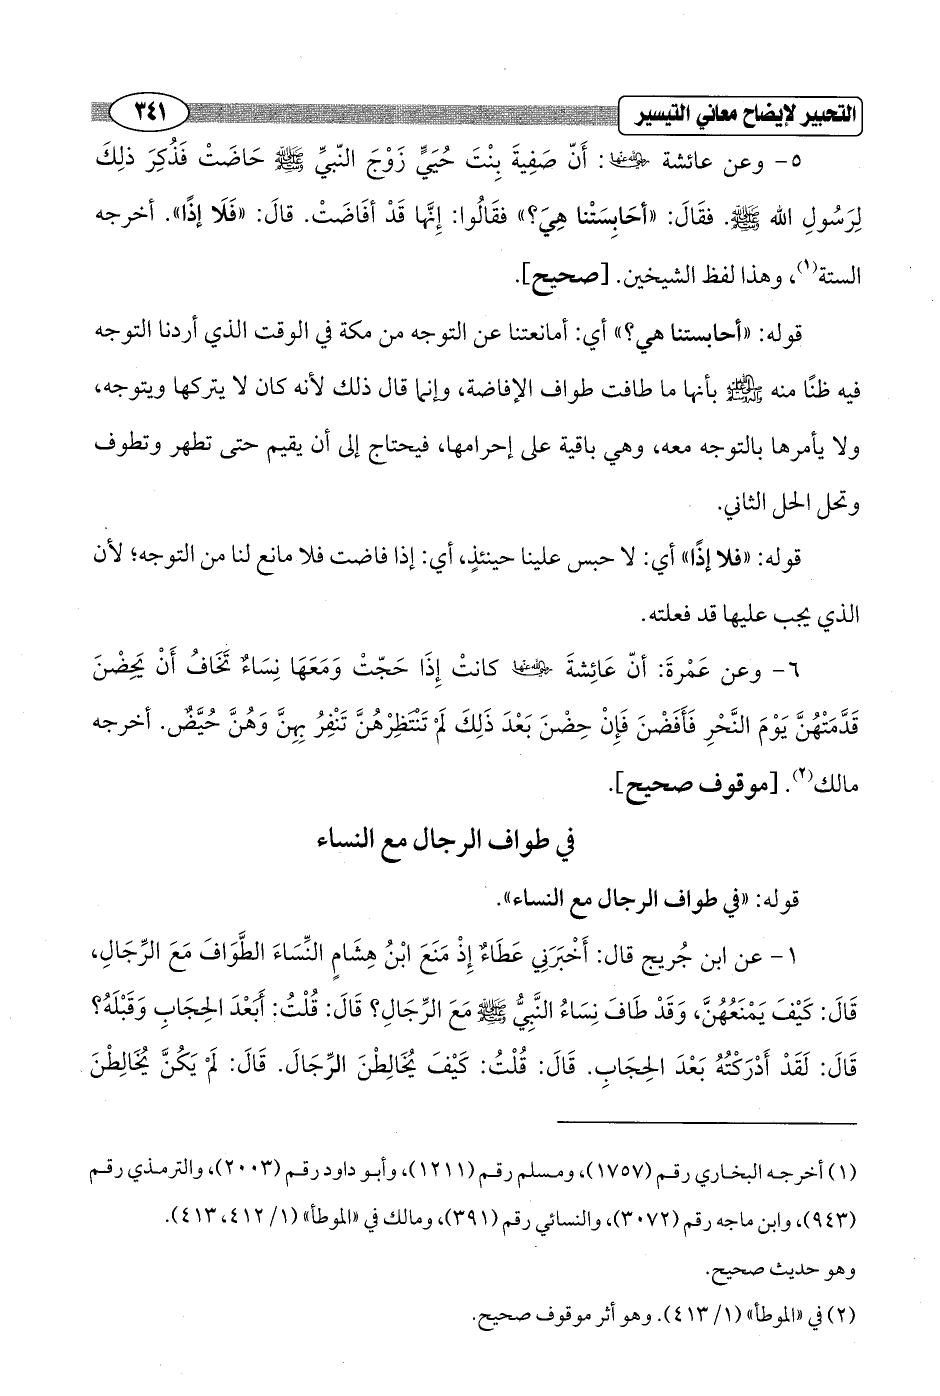 التحبير لإيضاح معاني التيسير
٣٤١
٥- وعن عائشة رضي الله عنها: أَنّ صَفِيةَ بِنْتَ حُيَيٍّ زَوْجَ النّبيِّ ﷺ حَاضَتْ فَذُكِرَ ذلِكَ
لِرَسُولِ الله ﷺ. فقَالَ: «أحَابِسَتْنا هِيَ؟» فقَالُوا: إنَّها قَدْ أفَاضَتْ. قالَ: «فَلَا إذًا». أخرجه
الستة(١)، وهذا لفظ الشيخين. [صحيح].
قوله: «أحابستنا هي؟» أي: أمانعتنا عن التوجه من مكة في الوقت الذي أردنا التوجه
فيه ظنًا منه ﷺ بأنها ما طافت طواف الإفاضة، وإنما قال ذلك لأنه كان لا يتركها ويتوجه،
ولا يأمرها بالتوجه معه، وهي باقية على إحرامها، فيحتاج إلى أن يقيم حتى تطهر وتطوف
وتحل الحل الثاني.
قوله: «فلا إذًا» أي: لا حبس علينا حينئذٍ، أي: إذا فاضت فلا مانع لنا من التوجه؛ لأن
الذي يجب عليها قد فعلته.
٦- وعن عَمْرةَ: أنّ عَائِشةَ رضي الله عنها كانتْ إذَا حَجّتْ وَمَعَهَا نِسَاءٌ تَخَافُ أَنْ يَحِضْنَ
قَدَّمَتْهُنَّ يَوْمَ النَّحْرِ فَأَفَضْنَ فَإِنْ حِضْنَ بَعْدَ ذَلِكَ لَمْ تَنْتَظِرْهُنَّ تَنْفِرُ بِهِنَّ وَهُنَّ حُيَّضٌ. أخرجه
مالك(٢). [موقوف صحيح].
في طواف الرجال مع النساء
قوله: «في طواف الرجال مع النساء».
١- عن ابن جُريج قال: أَخْبَرَنِي عَطَاءٌ إِذْ مَنَعَ ابْنُ هِشَامٍ النِّسَاءَ الطَّوَافَ مَعَ الرِّجَالِ،
قَالَ: كَيْفَ يَمْنَعُهُنَّ، وَقَدْ طَافَ نِسَاءُ النَّبِيُّ ﷺ مَعَ الرِّجَالِ؟ قَالَ: قُلْتُ: أَبَعْدَ الحِجَابِ وَقَبْلَهُ؟
قَالَ: لَقَدْ أَدْرَكْتُهُ بَعْدَ الحِجَابِ. قَالَ: قُلْتُ: كَيْفَ يُخَالِطْنَ الرِّجَالَ. قَالَ: لَمْ يَكُنَّ يُخَالِطْنَ
(١) أخرجه البخاري رقم (١٧٥٧)، ومسلم رقم (١٢١١)، وأبو داود رقم (٢٠٠٣)، والترمذي رقم
(٩٤٣)، وابن ماجه رقم (٣٠٧٢)، والنسائي رقم (٣٩١)، ومالك في «الموطأ» (١/ ٤١٢، ٤١٣).
وهو حديث صحيح.
(٢) في «الموطأ» (١/ ٤١٣). وهو أثر موقوف صحيح.